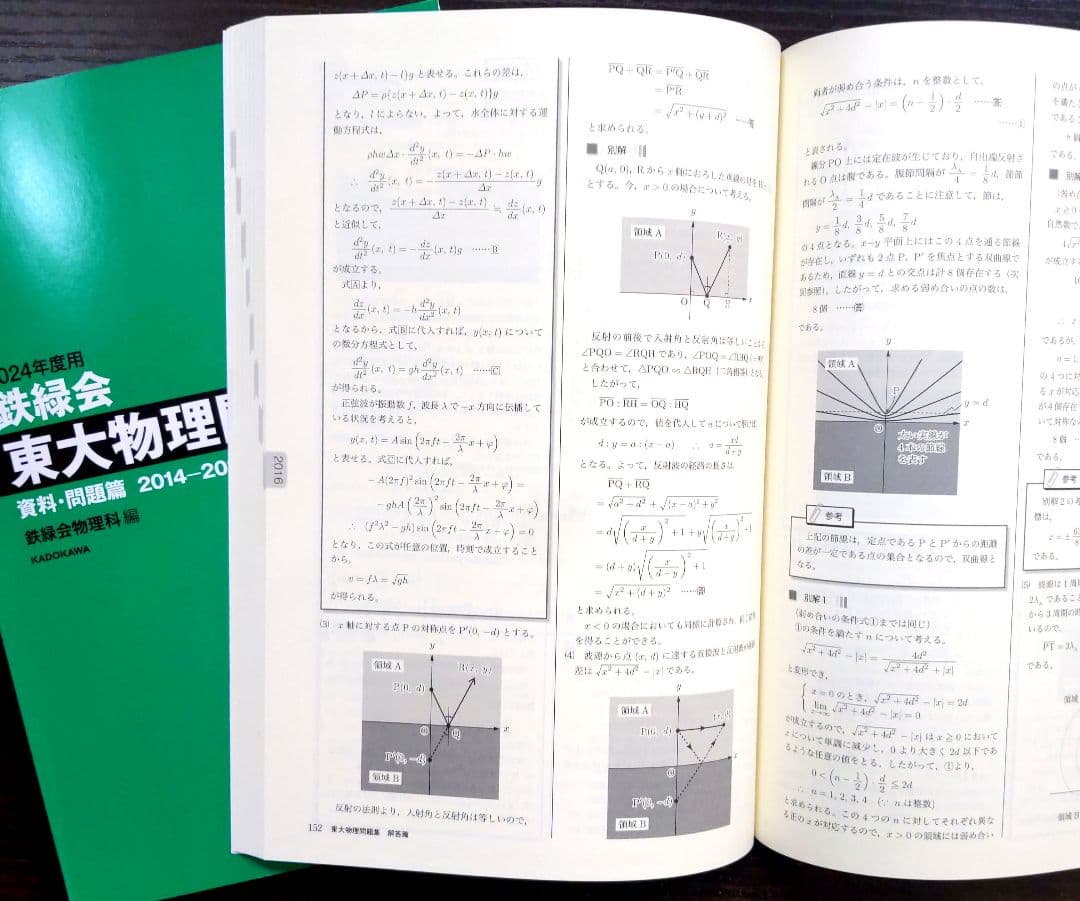 2024年度用
鉄緑会
東大物理問
資料・問題篇 2014-20
鉄緑会物理科 編
KADOKAWA
2016
z(x+Δx, t)−l}g と表せる。これらの差は、
ΔP = ρ{z(x+Δx, t)−z(x, t)}g
となり、l によらない。よって、水全体に対する運
動方程式は、
ρhwΔx・d²y/dt²(x, t) = −ΔP・hw
∴ d²y/dt²(x, t) = −z(x+Δx, t)−z(x, t)/Δx g
となるので、z(x+Δx, t)−z(x, t)/Δx ≒ dz/dx(x, t)
と近似して、
d²y/dt²(x, t) = −dz/dx(x, t)g ……B
が成立する。
式Aより、
dz/dx(x, t) = −h d²y/dx²(x, t)
となるから、式Bに代入すれば、y(x, t) について
の微分方程式として、
d²y/dt²(x, t) = gh d²y/dx²(x, t) ……C
が得られる。
正弦波が振動数 f、波長 λ で −x 方向に伝播して
いる状況を考えると、
y(x, t) = A sin(2πft − 2π/λ x + φ)
と表せる。式Cに代入すれば、
−A(2πf)² sin(2πft − 2π/λ x + φ) =
−ghA(2π/λ)² sin(2πft − 2π/λ x + φ)
∴ (f²λ² − gh) sin(2πft − 2π/λ x + φ) = 0
となり、この式が任意の位置、時刻で成立すること
から、
v = fλ = √gh
が得られる。
(3) x 軸に対する点 P の対称点を P′(0, −d) とする。
y
領域 A
R(x, y)
P(0, d)
O
Q
x
P′(0, −d)
領域 B
反射の法則より、入射角と反射角は等しいので、
152 東大物理問題集 解答篇
PQ + QR = P′Q + QR
= P′R
= √x²+(y+d)² ……答
と求められる。
■ 別解
Q(a, 0)、R から x 軸におろした垂線の足を H
とする。今、x > 0 の場合について考える。
y
領域 A
R(x, y)
P(0, d)
O
Q
H
x
反射の前後で入射角と反射角は等しいことから
∠PQO = ∠RQH であり、∠POQ = ∠RHQ
と合わせて、△PQO ∽ △RQH (二角相等) となる。
したがって、
PO : RH = OQ : HQ
が成立するので、値を代入して a について解けば
d : y = a : (x−a) ∴ a = xd/d+y
となる。よって、反射波の経路の長さは
PQ + QR
= √a²+d² + √(x−a)²+y²
= d√(x/d+y)²+1 + y√(x/d+y)²+1
= (d+y)√(x/d+y)²+1
= √x²+(d+y)² ……答
と求められる。
x < 0 の場合においても同様に計算され、同じ結果
を得ることができる。
(4) 波源から点 (x, d) に達する直接波と反射波の経路
差は √x²+4d² − |x| である。
y
領域 A
P(0, d)
O
x
P′(0, −d)
領域 B
両者が弱め合う条件は、n を整数として、
√x²+4d² − |x| = (n − 1/2)・d/2 ……答
……①
と表される。
線分 PO 上には定在波が生じており、自由端反射さ
れる O 点は腹である。腹節間隔が λs/4 = 1/8 d、節節
間隔が λs/2 = 1/4 d であることに注意して、節は、
y = 1/8 d, 3/8 d, 5/8 d, 7/8 d
の4点となる。x−y 平面上にはこの4点を通る節線
が存在し、いずれも2点 P、P′ を焦点とする双曲線で
あるため、直線 y = d との交点は計8個存在する（次
図参照）。したがって、求める弱め合いの点の数は、
8個 ……答
である。
y
領域 A
P
y = d
O
x
太い実線が
4本の節線
を表す
領域 B
参考
上記の節線は、定点である P と P′ からの距離
の差が一定である点の集合となるので、双曲線と
なる。
■ 別解1
(弱め合いの条件式①までは同じ)
①の条件を満たす n について考える。
√x²+4d² − |x| = 4d²/√x²+4d²+|x|
と変形でき、
x = 0 のとき、√x²+4d² − |x| = 2d
lim x→∞ √x²+4d² − |x| = 0
が成立するので、√x²+4d² − |x| は x ≧ 0 において
x について単調に減少し、0 より大きく 2d 以下であ
るような任意の値をとる。したがって、①より、
0 < (n − 1/2)・d/2 ≦ 2d
∴ n = 1, 2, 3, 4 (∵ n は整数)
と求められる。この4つの n に対してそれぞれ異な
る正の x が対応するので、x > 0 の領域には弱め合い
の点が
を満た
である
■ 別解
x ≧ 0
自然数で
が成立す
であるが、
n = 1,
の4つに対
る x が対応
が4個存在
いて対称な
8個
である。
参考
別解2の
標は、
である。
(5) 波源は1周
2λs であるこ
から3周期の
いるので、
PT = 3λs
である。
領域 B